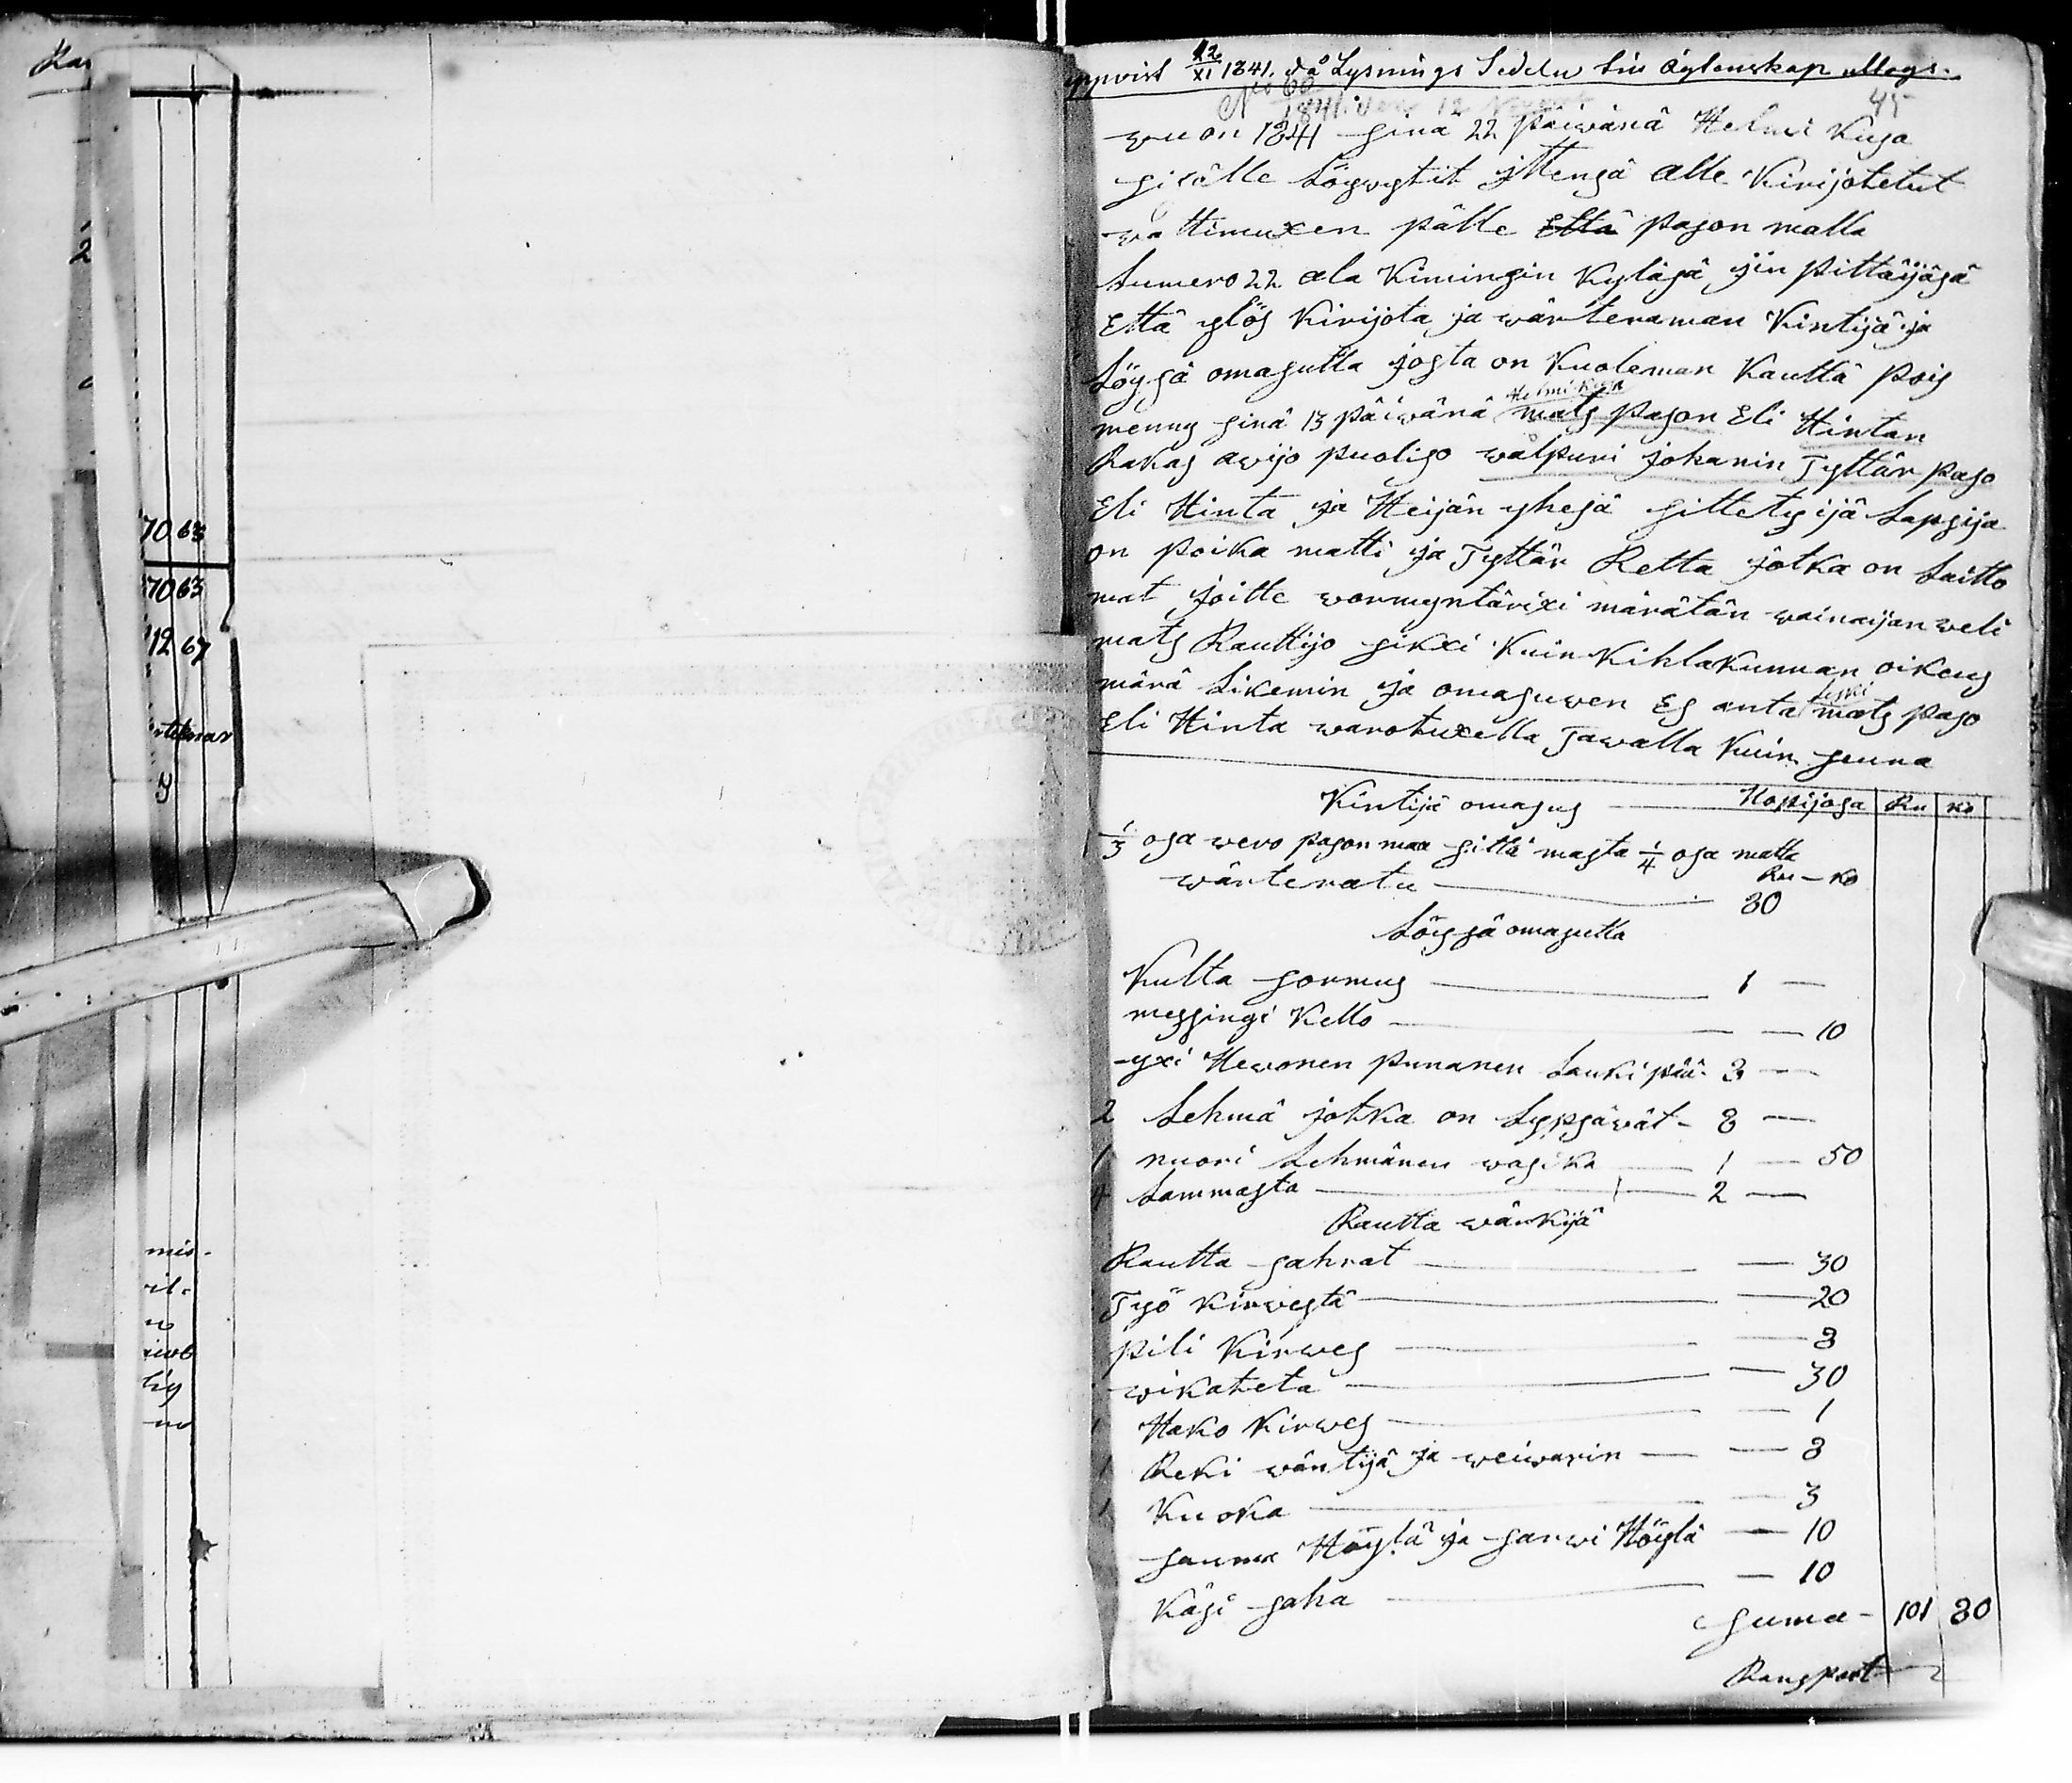 Kar
70 63
70 63
12 67
y
mis-
il-
lig
uppvist 12/XI 1841. då Lysnings Sedeln till äglenskap uttogs.
No 60
1841 den 12 Novemb
45
wuon 1841 sina 22 päiwänä Helmi Kusa
sisälle Löywytit ittensä alle Kirijotetut
wattimuxen pälle Että Pason malla
Numero 22 ala Kimingin Kyläsä ijin pittäijäsä
Että ylös Kirijota ja wärteraman Kintijä ja
Löysä omasutta josta on Kuoleman Kautta Pois
menny sinä 13 päiwänä Helmi-Kusa mats Pason Eli Hintan
Rakas awijo puoliso walpuri Johanin Tyttär Paso
Eli Hinta ja Heijän yhesä sittetyijä Lapsija
on Poika matti ja Tyttär Retta jotka on Laitto
mat joille wormyntärixi märätän wainaijan weli
mats Rauttijo sixi Kuin Kihlakunnan oikeus
märä Likemin ja omasuwen Es anta Leski mats Paso
Eli Hinta warotuxella Tawalla Kuin seura
Kintijä omasus Hopijosa Ru Ko
1/3 osa wero pason maa sittä masta 1/4 osa matta
Ru - Ko
wärteratu 80
Löysä omasutta
Kulta sormus 1 —
messingi Kello — 10
yxi Hewonen Punanen Lauki pää - 8 —
2 Lehmä jotka on Lypsäwät - 8 —
1 nuori Lehmänen wasika 1 — 50
4 Lammasta 2 —
Rautta wärkijä
Rautta sahrat — 30
Työ Kirwestä — 20
pili Kirwes — 8
wikateta — 30
1 Hako Kirwes — 1
1 Reki wäntijä ja weiwarin — 8
1 Kuoka — 3
sauma Höylä ja sarwi Höylä — 10
Käsi saha — 10
Suma - 101 80
Ransport